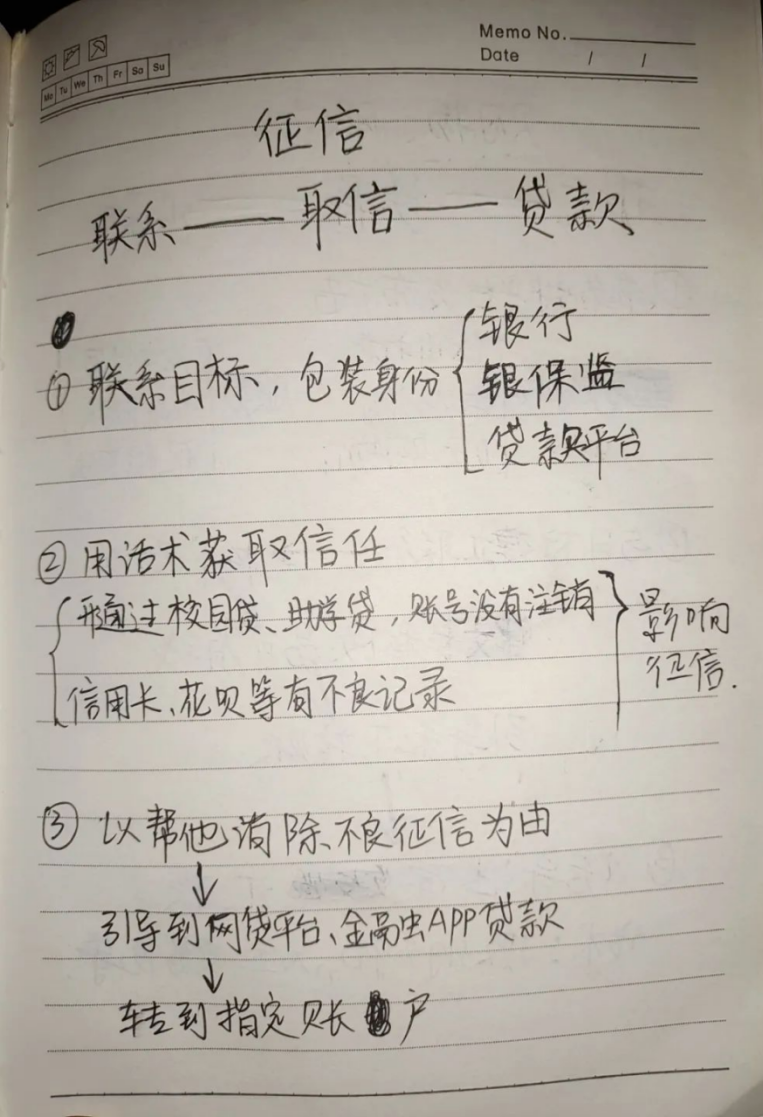 Memo No.
Date / /
Mo Tu We Th Fr Sa Su
征信
联系——取信——贷款
①联系目标，包装身份
银行
银保监
贷款平台
②用话术获取信任
通过校园贷、助学贷，账号没有注销
信用卡、花呗等有不良记录
影响
征信.
③以帮他消除不良征信为由
↓
引导到网贷平台、金融APP贷款
↓
转到指定账户